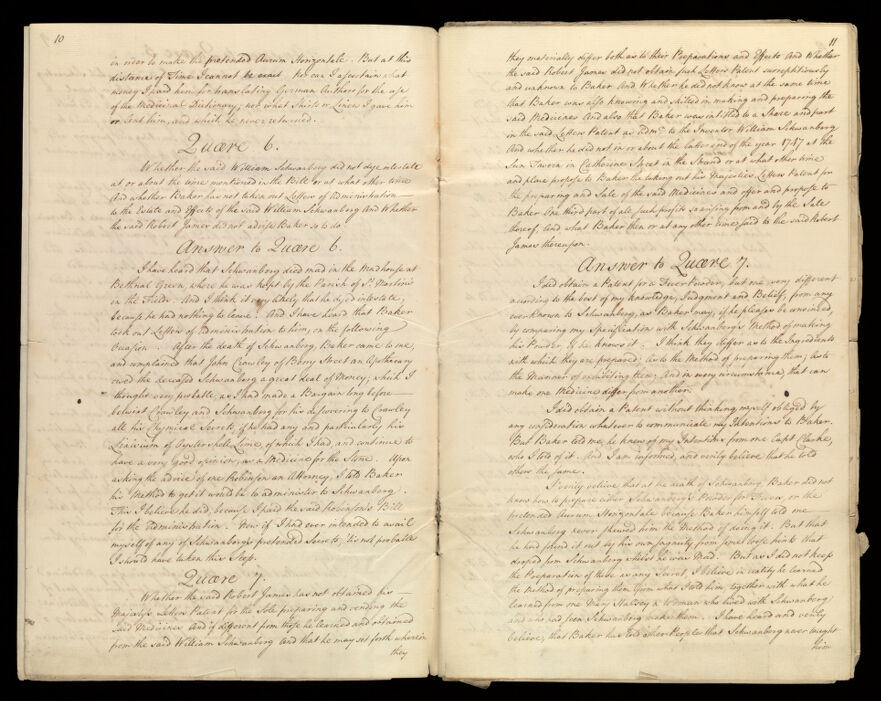 10
in order to make the pretended Aurum Horizontale. But at this
distance of Time I cannot be exact. Nor can I ascertain what
money I paid him for translating German Authors for the use
of the Medicinal Dictionary, nor what Shirts or Linen I gave him
or lent him, and which he never returned.
Quære 6.
Whether the said William Schwanberg did not dye intestate
at or about the time mentioned in the Bill or at what other time
And whether Baker has not taken out Letters of Administration
to the Estate and Effects of the said William Schwanberg And Whether
the said Robert James did not advise Baker so to do.
Answer to Quære 6.
I have heard that Schwanberg died mad in the Madhouse at
Bethnal Green, where he was kept by the Parish of St. Martins
in the Fields. And I think it very likely that he dyed intestate,
because he had nothing to leave. And I have heard that Baker
took out Letters of Administration to him, on the following
Occasion. After the death of Schwanberg, Baker came to me,
and complained that John Crowley of Barry Street an Apothecary
owed the deceased Schwanberg a great deal of Money; which I
thought very probable, as I had made a Bargain long before
betwixt Crowley and Schwanberg for his discovering to Crowley
all his Chymical Secrets, if he had any and particularly his
Lixivium of Oystershell Lime, of which I had, and continue to
have a very good opinion, as a Medicine for the Stone. Upon
asking the advice of one Robinson an Attorney, I told Baker
his Method to get it would be to administer to Schwanberg.
This I believe he did, because I paid the said Robinson's Bill
for the Administration. Now if I had ever intended to avail
myself of any of Schwanberg's pretended Secrets, 'tis not probable
I should have taken this Step.
Quære 7.
Whether the said Robert James has not obtained his
Majesty's Letters Patent for the Sole preparing and vending the
said Medicines And if different from those he learned and obtained
from the said William Schwanberg And that he may set forth wherein
they
11
they materially differ both as to their Preparations and Effects And Whether
the said Robert James did not obtain such Letters Patent surreptitiously
and unknown to Baker And Whether he did not know at the same time
that Baker was also knowing and skilled in making and preparing the
said Medicines And also that Baker was intitled to a Share and part
in the said Letters Patent as Admr. to the Inventor William Schwanberg
And whether he did not in or about the latter end of the year 1747 at the
Sun Tavern in Catherine Street in the Strand or at what other time
and place propose to Baker the taking out his Majesties Letters Patent for
the preparing and Sale of the said Medicines and offer and propose to
Baker One third part of all such profits as arising from and by the Sale
thereof, And what Baker then or at any other time said to the said Robert
James thereupon.
Answer to Quære 7.
I did obtain a Patent for a Fever Powder, but one very different
according to the best of my knowledge, Judgment and Belief, from any
ever known to Schwanberg, as Baker may, if he pleases be convinced,
by comparing my Specification with Schwanberg's Method of making
his Powder, if he knows it. I think they differ as to the Ingredients
with which they are prepared; as to the Method of preparing them; as to
the Manner of exhibiting them; And in every circumstance, that can
make one Medicine differ from another.
I did obtain a Patent without thinking myself obliged by
any consideration whatever to communicate my Intentions to Baker.
But Baker told me, he knew of my Intentions from one Capt. Clarke,
who I told of it. And I am informed, and verily believe that he told
others the same.
I verily believe that at the death of Schwanberg Baker did not
know how to prepare either Schwanberg's Powder for Fevers, or the
pretended Aurum Horizontale because Baker himself told me
Schwanberg never shewed him the Method of doing it. But that
he had found it out by his own sagacity from some loose hints that
dropped from Schwanberg whilst he was Mad. But as I did not keep
the Preparation of these as any Secret, I believe in reality he learned
the Method of preparing them from what I told him, together with what he
learned from one Mary Halsey a Woman who lived with Schwanberg
and who had seen Schwanberg make them. I have heard and verily
believe, that Baker has told other Peoples that Schwanberg never taught
him